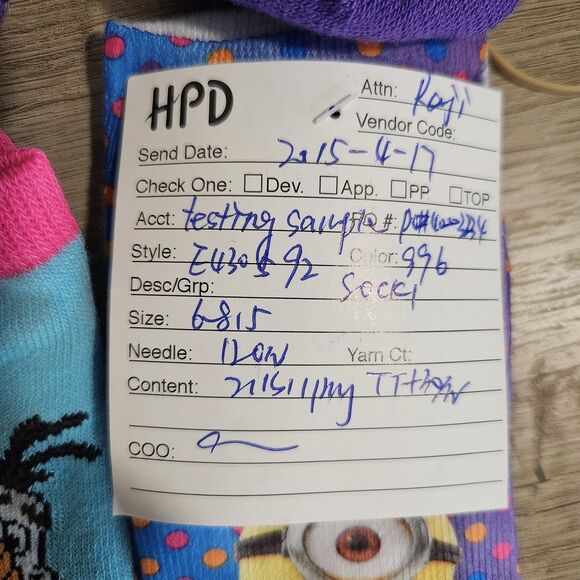 HPD
Attn: Koji
Vendor Code:
Send Date: 2015-4-17
Check One: Dev. App. PP TOP
Acct: testing samples PO #:
Style: Color: 996
Desc/Grp: Socks
Size: 6-8.5
Needle: 120N Yarn Ct:
Content:
COO: